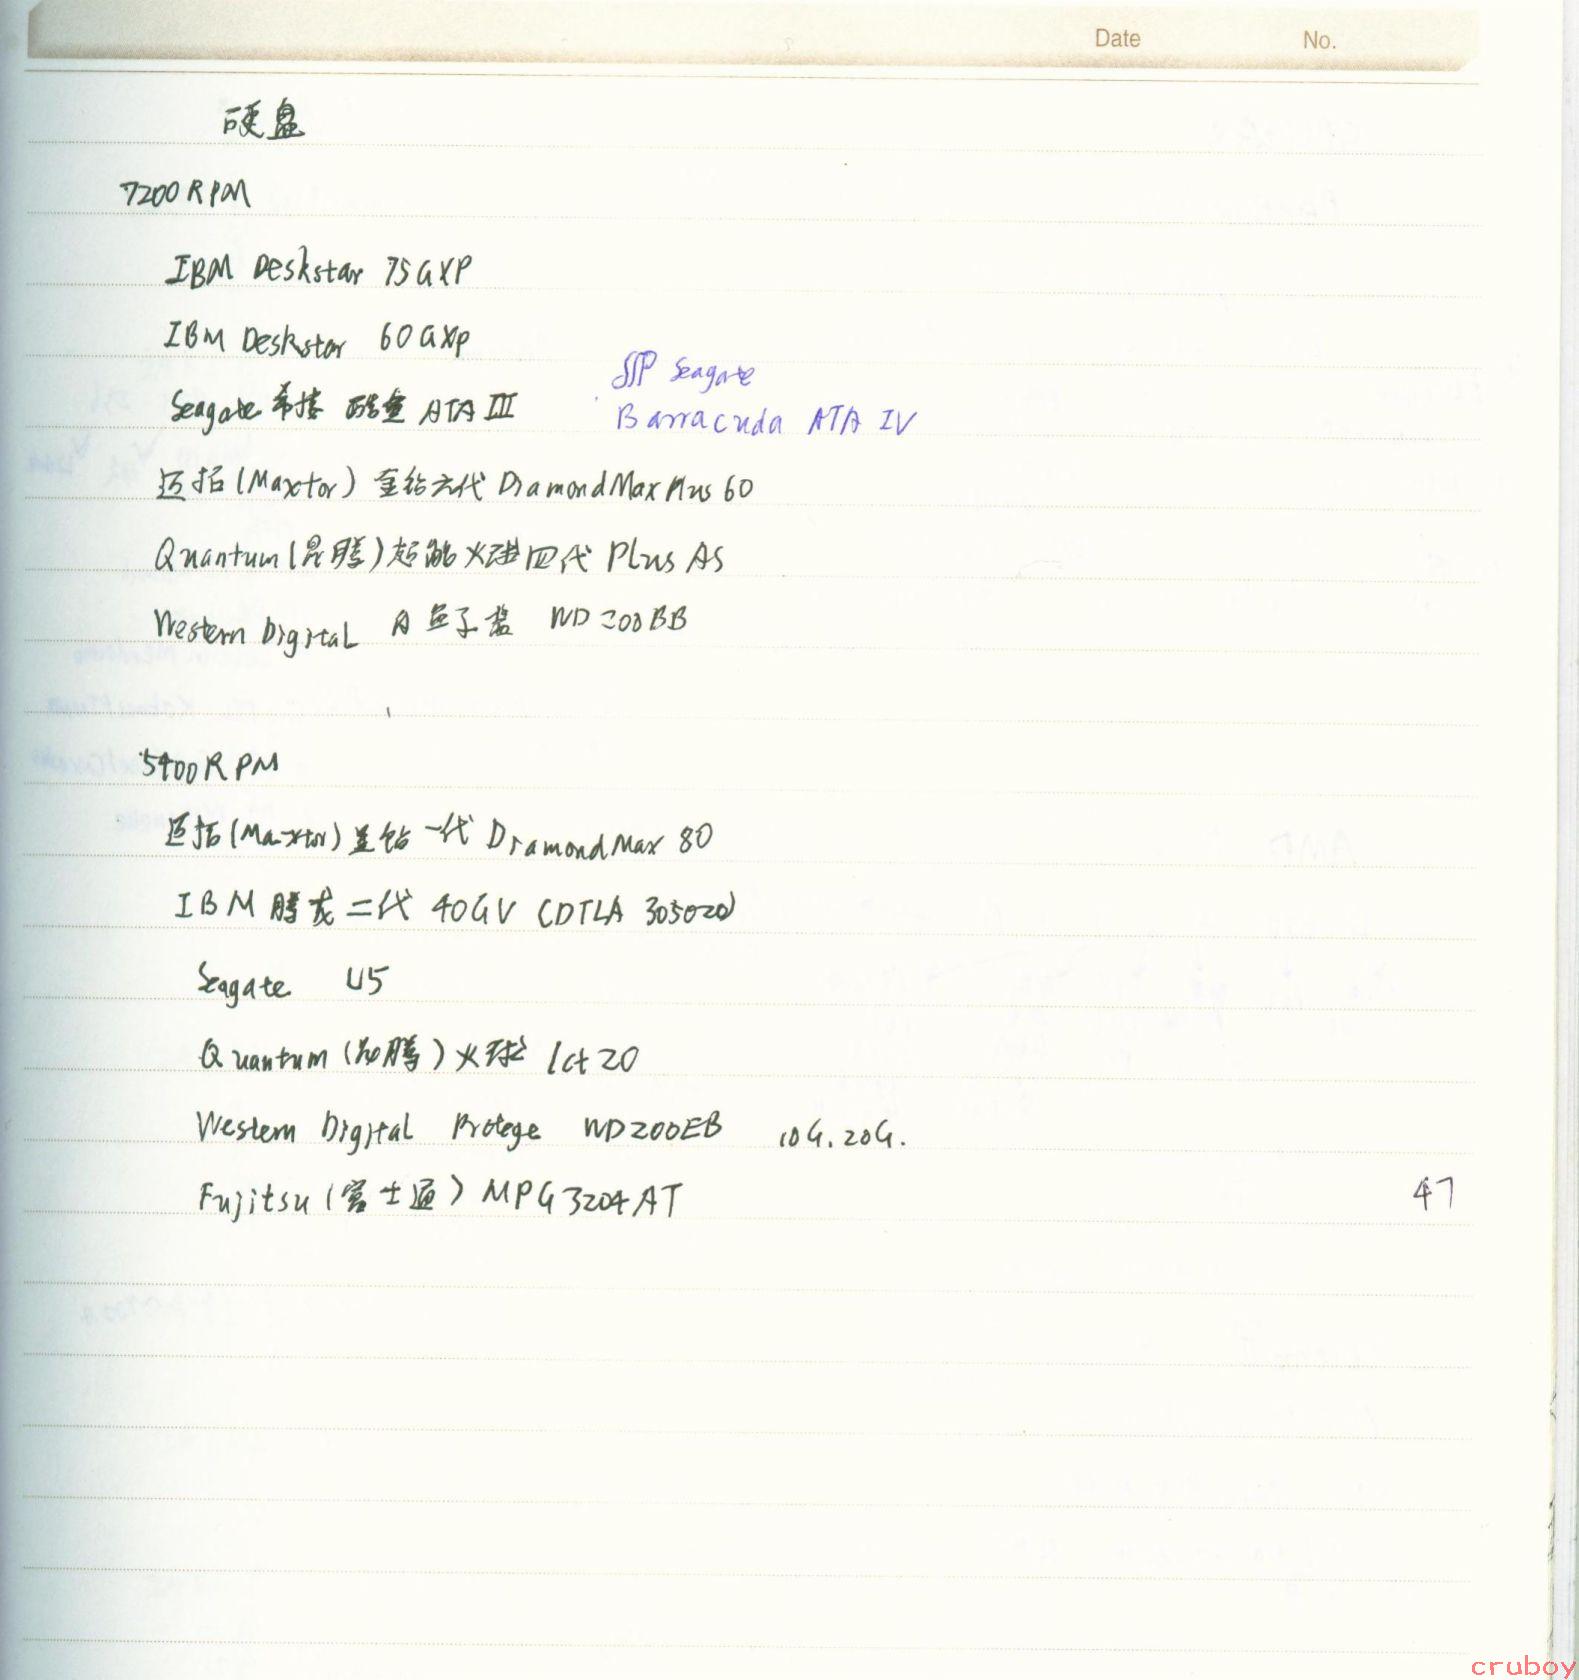 Date No.
硬盘
7200RPM
IBM Deskstar 75GXP
IBM Deskstar 60GXP
Seagate 希捷 酷鱼 ATA III
Seagate
Barracuda ATA IV
迈拓(Maxtor) 金钻六代 DiamondMax Plus 60
Quantum(昆腾)超能火球四代 Plus AS
Western Digital 鱼子酱 WD200BB
5400RPM
迈拓(Maxtor)金钻一代 DiamondMax 80
IBM 腾龙二代 40GV (DTLA 305020)
Seagate U5
Quantum (昆腾)火球 lct 20
Western Digital Protege WD200EB 10G.20G.
Fujitsu(富士通)MPG3204AT
47
cruboy